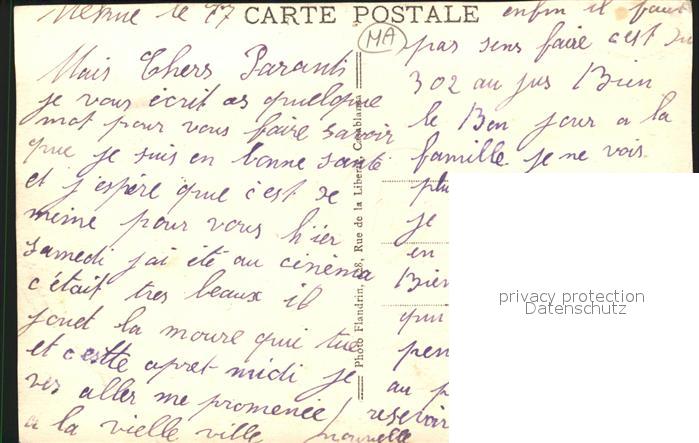 le 27
CARTE POSTALE
MA
Mais Chers Paranti
je vous écrit as quelque
mot pour vous faire savoir
que je suis en bonne santé
et j'espére que c'est de
meime pour vous hier
samedi j'ai été au cinéma
c'était tres beaux il
jouet la moure qui tue
et cestte apret-midi je
ves aller me promenée
a la vielle ville
Photo Flandrin, 128, Rue de la Liberté Casablanca
enfin il faut
pas sens faire c'est
302 au jus Bien
le Bon jour a la
famille je ne vois
plu
je
en
Bien
qui
pen
au p
resevoir
nouvelle
privacy protection
Datenschutz